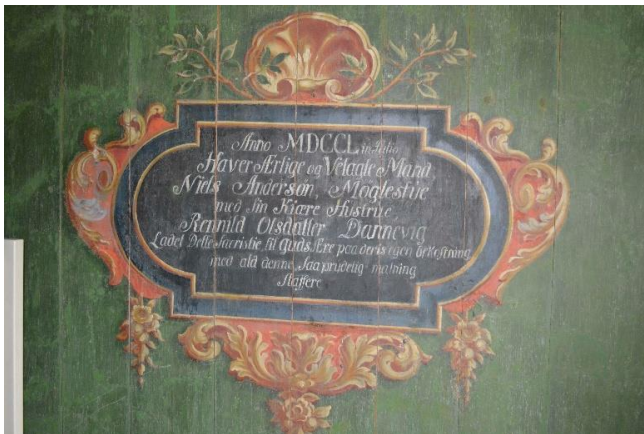 Anno MDCCL in Julio
Haver Ærlige og Velagte Mand
Niels Anderson, Moglestue
med Sin Kiære Hustrue
Rennild Olsdatter Dannevig
Ladet Dette Sacristie til Guds Ære paa deris egen bekostning
med ald denne Saa prudelig malning
Staffere